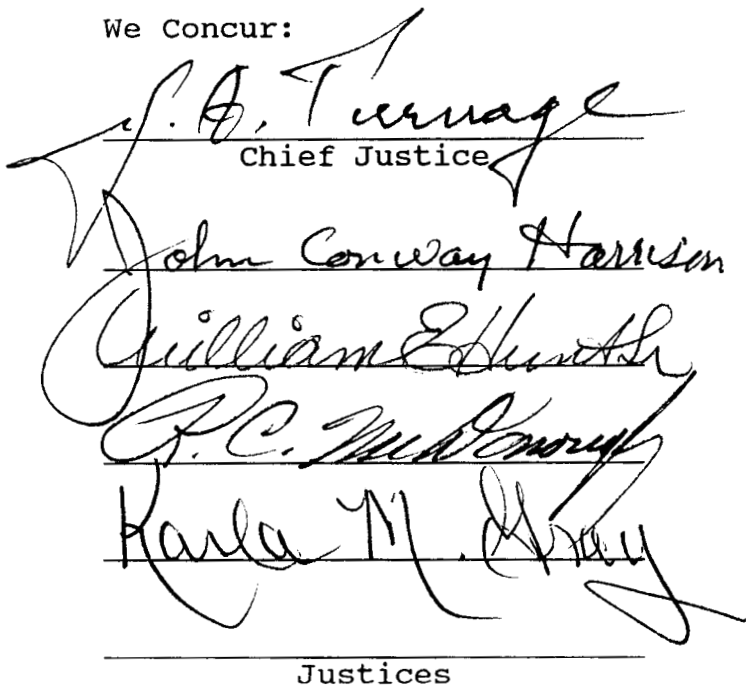 We Concur:
J. A. Turnage
Chief Justice
John Conway Harrison
William E Hunt Sr
R. C. McDonough
Karla M. Gray
Justices